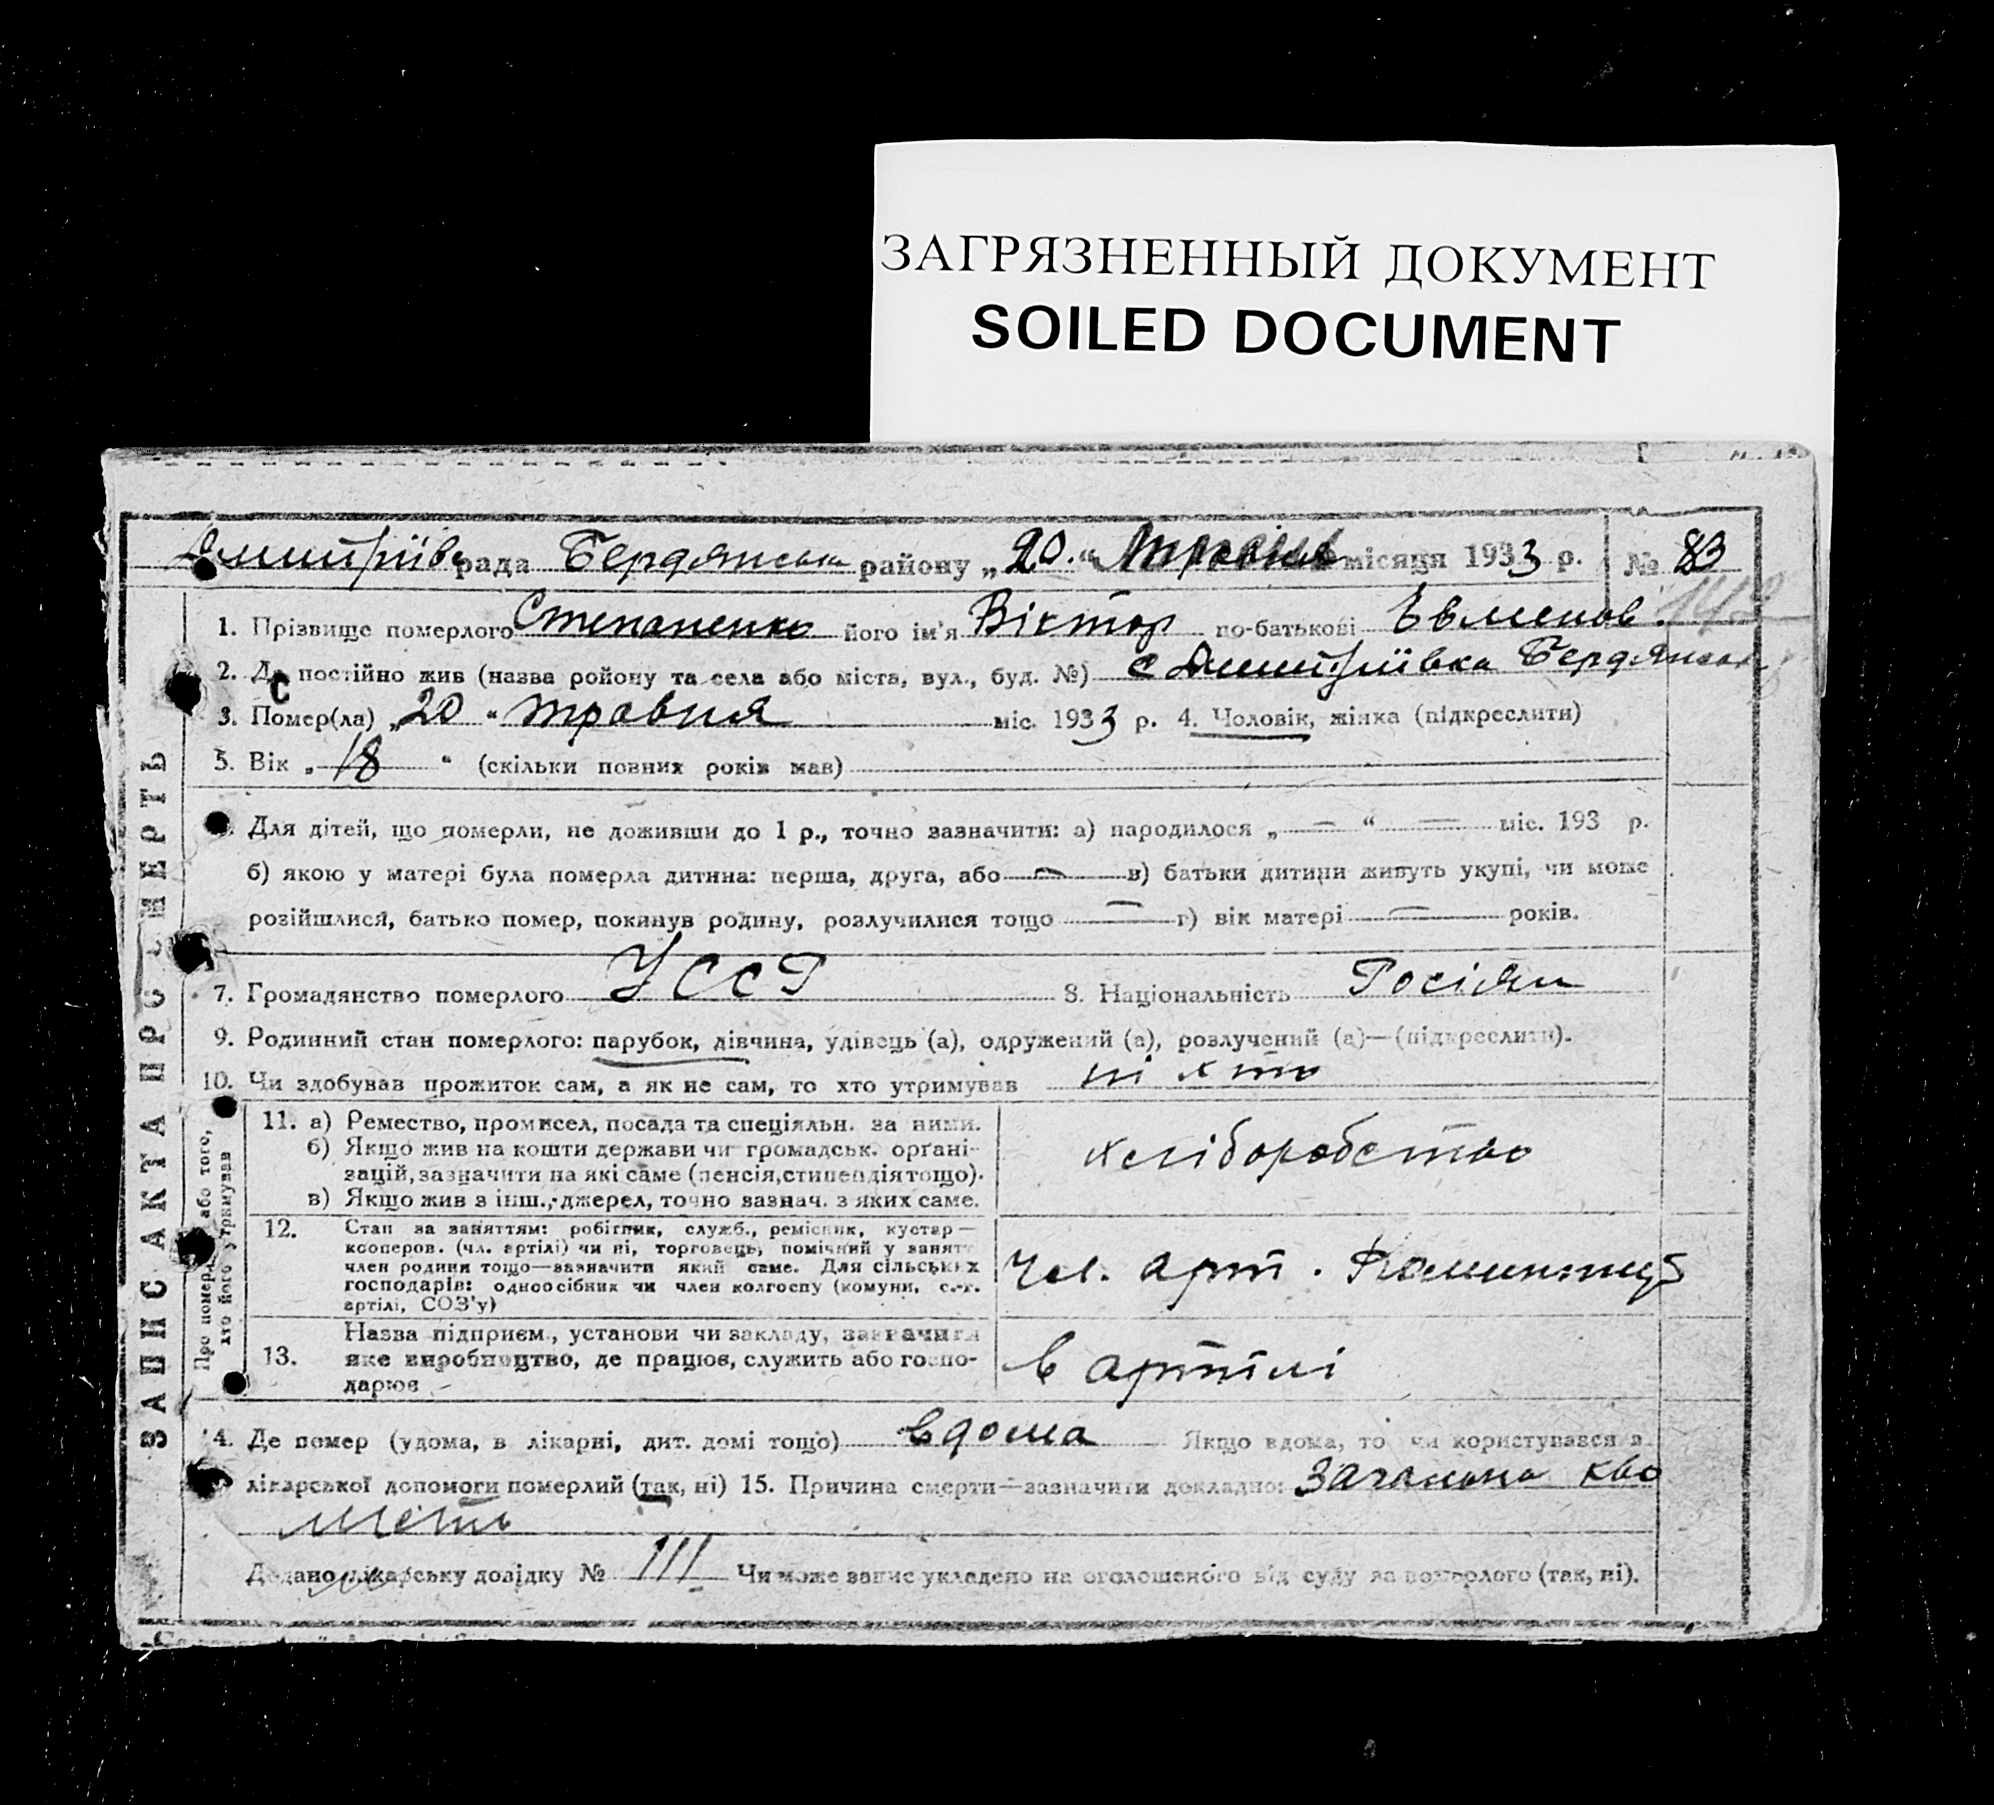 ЗАГРЯЗНЕННЫЙ ДОКУМЕНТ
SOILED DOCUMENT
Дмитріїв рада Бердянська району „20.“ травня місяця 1933 р. № 83
142
1. Прізвище померлого Степаненко його ім'я Віктор по-батькові Евменов.
2. Де постійно жив (назва ройону та села або міста, вул., буд. №) с Дмитріївка Бердянськ
3. Помер(ла) „20“ травня міс. 1933 р. 4. Чоловік, жінка (підкреслити)
5. Вік „18“ (скільки повних років мав)
Для дітей, що померли, не доживши до 1 р., точно зазначити: а) народилося „—“ — міс. 193 р.
б) якою у матері була померла дитина: перша, друга, або — в) батьки дитини живуть укупі, чи може
розійшлися, батько помер, покинув родину, розлучилися тощо — г) вік матері — років.
7. Громадянство померлого УССР 8. Національність Росіян
9. Родинний стан померлого: парубок, дівчина, удівець (а), одружений (а), розлучений (а)—(підкреслити).
10. Чи здобував прожиток сам, а як не сам, то хто утримував ні хто
ЗАПИС АКТА ПРО СМЕРТЬ
Про померл або того,
хто його утримував
11. а) Ремество, промисел, посада та спеціяльн. за ними.
б) Якщо жив на кошти держави чи громадськ. орґані-
зацій, зазначити на які саме (пенсія, стипендія тощо).
в) Якщо жив з інш., джерел, точно зазнач. з яких саме.
хліборобство
12. Стан за заняттям: робітник, служб., ремісник, кустар—
кооперов. (чл. артілі) чи ні, торговець, помічний у занятт
член родини тощо—зазначити який саме. Для сільських
господарів: одноосібник чи член колгоспу (комуни, с.-г.
артілі, СОЗ'у)
Чл. арт.
13. Назва підприєм., установи чи закладу, зазначити
яке виробництво, де працює, служить або госпо-
дарює
в артілі
14. Де помер (удома, в лікарні, дит. домі тощо) вдома Якщо вдома, то чи користувався з
лікарської допомоги померлий (так, ні) 15. Причина смерти—зазначити докладно:
Додано лікарську довідку № 111 Чи може запис укладено на оголошеного від суду за померлого (так, ні).